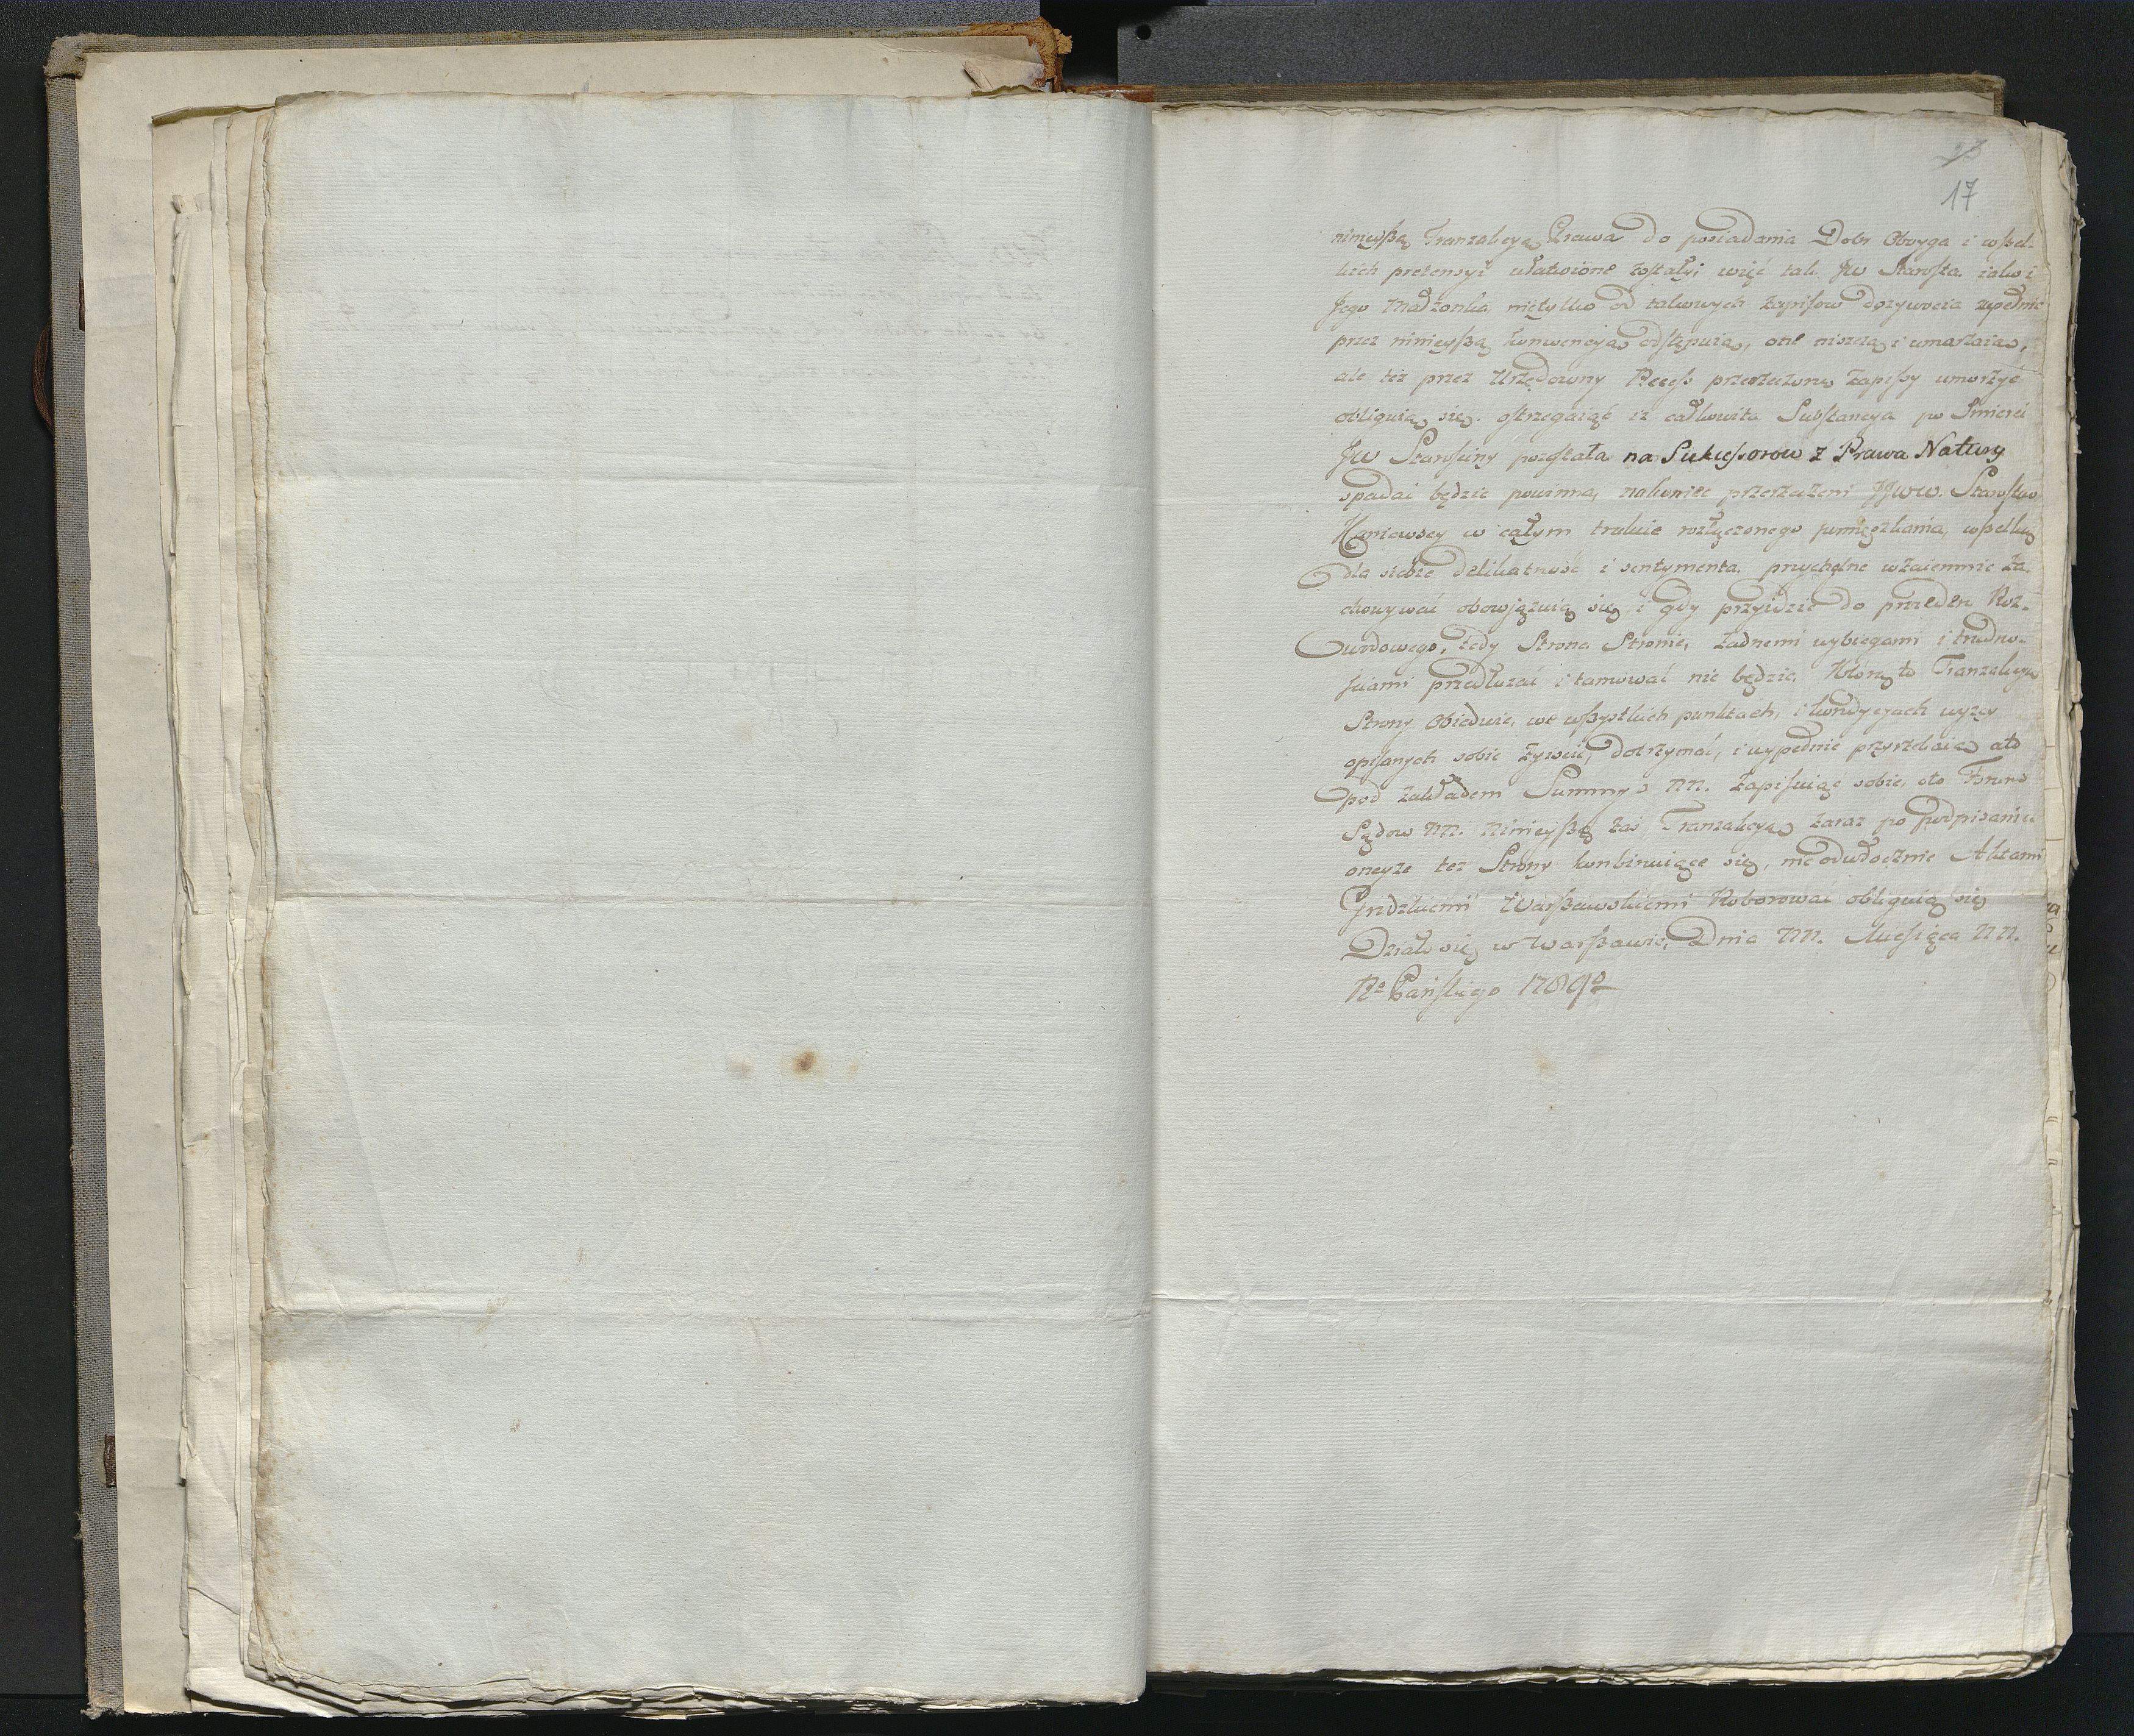 23
17
nineyszą Tranzakcyą Prawa do posiadania Dobr Oboyga i wszel-
kich pretensyi ułatwione zostały, więc tak JW Starosta iako i
Jego Małżonka, nietylko od takowych zapisow dożywocia zupełnie
przez ninieyszą konwencyą odstępuią, one niszczą i umarzaią,
ale też przez Urzędowny Recess przerzeczone zapisy umorzyć
obliguią się. ostrzegaiąc iż całkowita Substancya po Smierci
JW Starosciny pozostała na Sukcessorow z Prawa Natury
spadać będzie powinna, nakoniec przerzeczeni JJWW. Starostwo
Kaniewscy w całym trakcie rozłączonego pomięszkania, wszelką
dla siebie delikatność i sentymenta przychylne wzaiemnie za-
chowywać obowiązuią się, i gdy przyidzie do przeden Roz-
wodowego, tedy Strona Stronie, żadnemi wybiegami i trudno-
sciami przedłużać i tamować nie będzie. Którą to Tranzakcyą
Strony Obiedwie, we wszystkich punktach, i kondycyach wyżey
opisanych sobie ziścić, dotrzymać, i wypełnić przyrzekaią, a to
pod zakładem Summy NN. zapisuiąc sobie, oto Forum
Sądow NN. Ninieyszą zaś Tranzakcyą zaraz po podpisaniu
oneyże też Strony kombinuiące się, nieodwłocznie Aktami
Grodzkiemi Warszawskiemi Roborować obliguią się
Działo się w Warszawie, Dnia NN. Miesiąca NN.
Rº Pańskiego 1789º